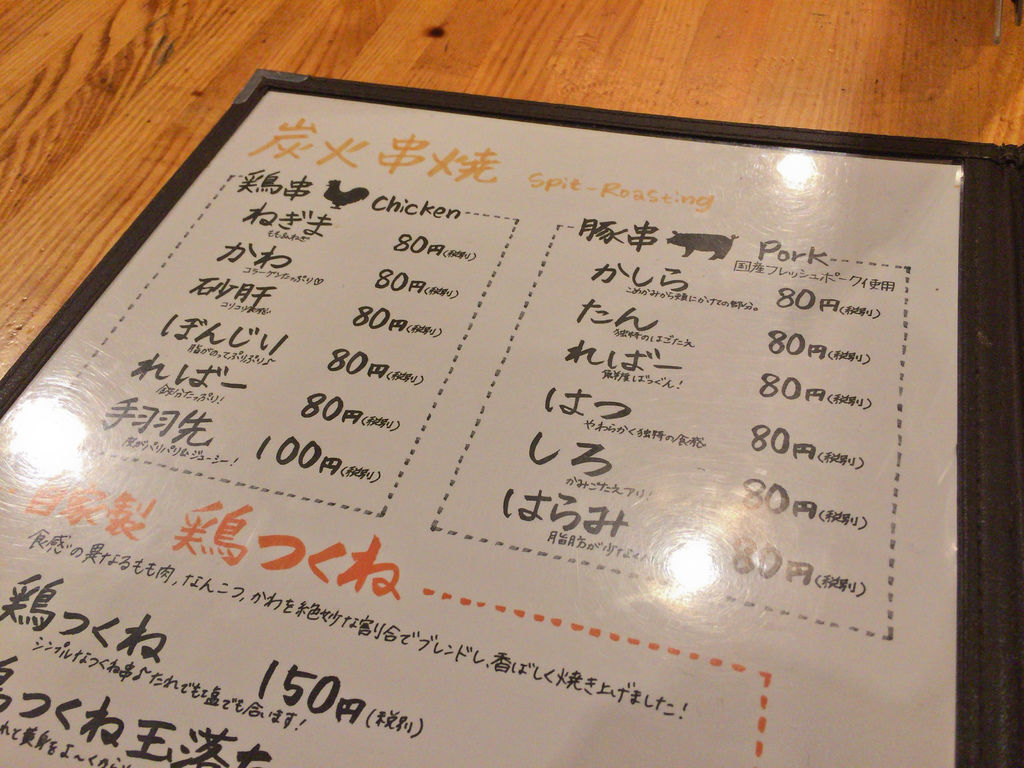 炭火串焼 Spit-Roasting
鶏串 Chicken
ねぎま 80円(税別)
ももねぎ
かわ 80円(税別)
コラーゲンたっぷり♡
砂肝 80円(税別)
コリコリ食感
ぼんじり 80円(税別)
脂がのってぷりぷり♪
ればー 80円(税別)
鉄分たっぷり!
手羽先 100円(税別)
皮がパリパリ ジューシー!
豚串 Pork
国産フレッシュポーク使用
かしら 80円(税別)
こめかみから頬にかけての部分。
たん 80円(税別)
独特のはごたえ
ればー 80円(税別)
鮮度ばつぐん!
はつ 80円(税別)
やわらかく独特の食感
しろ 80円(税別)
かみごたえアリ!
はらみ 80円(税別)
脂肪が少なく
自家製 鶏つくね
食感の異なるもも肉,なんこつ,かわを絶妙な割合でブレンドし、香ばしく焼き上げました!
鶏つくね 150円(税別)
シンプルなつくね串♪たれでも塩でも合います!
つくね玉落